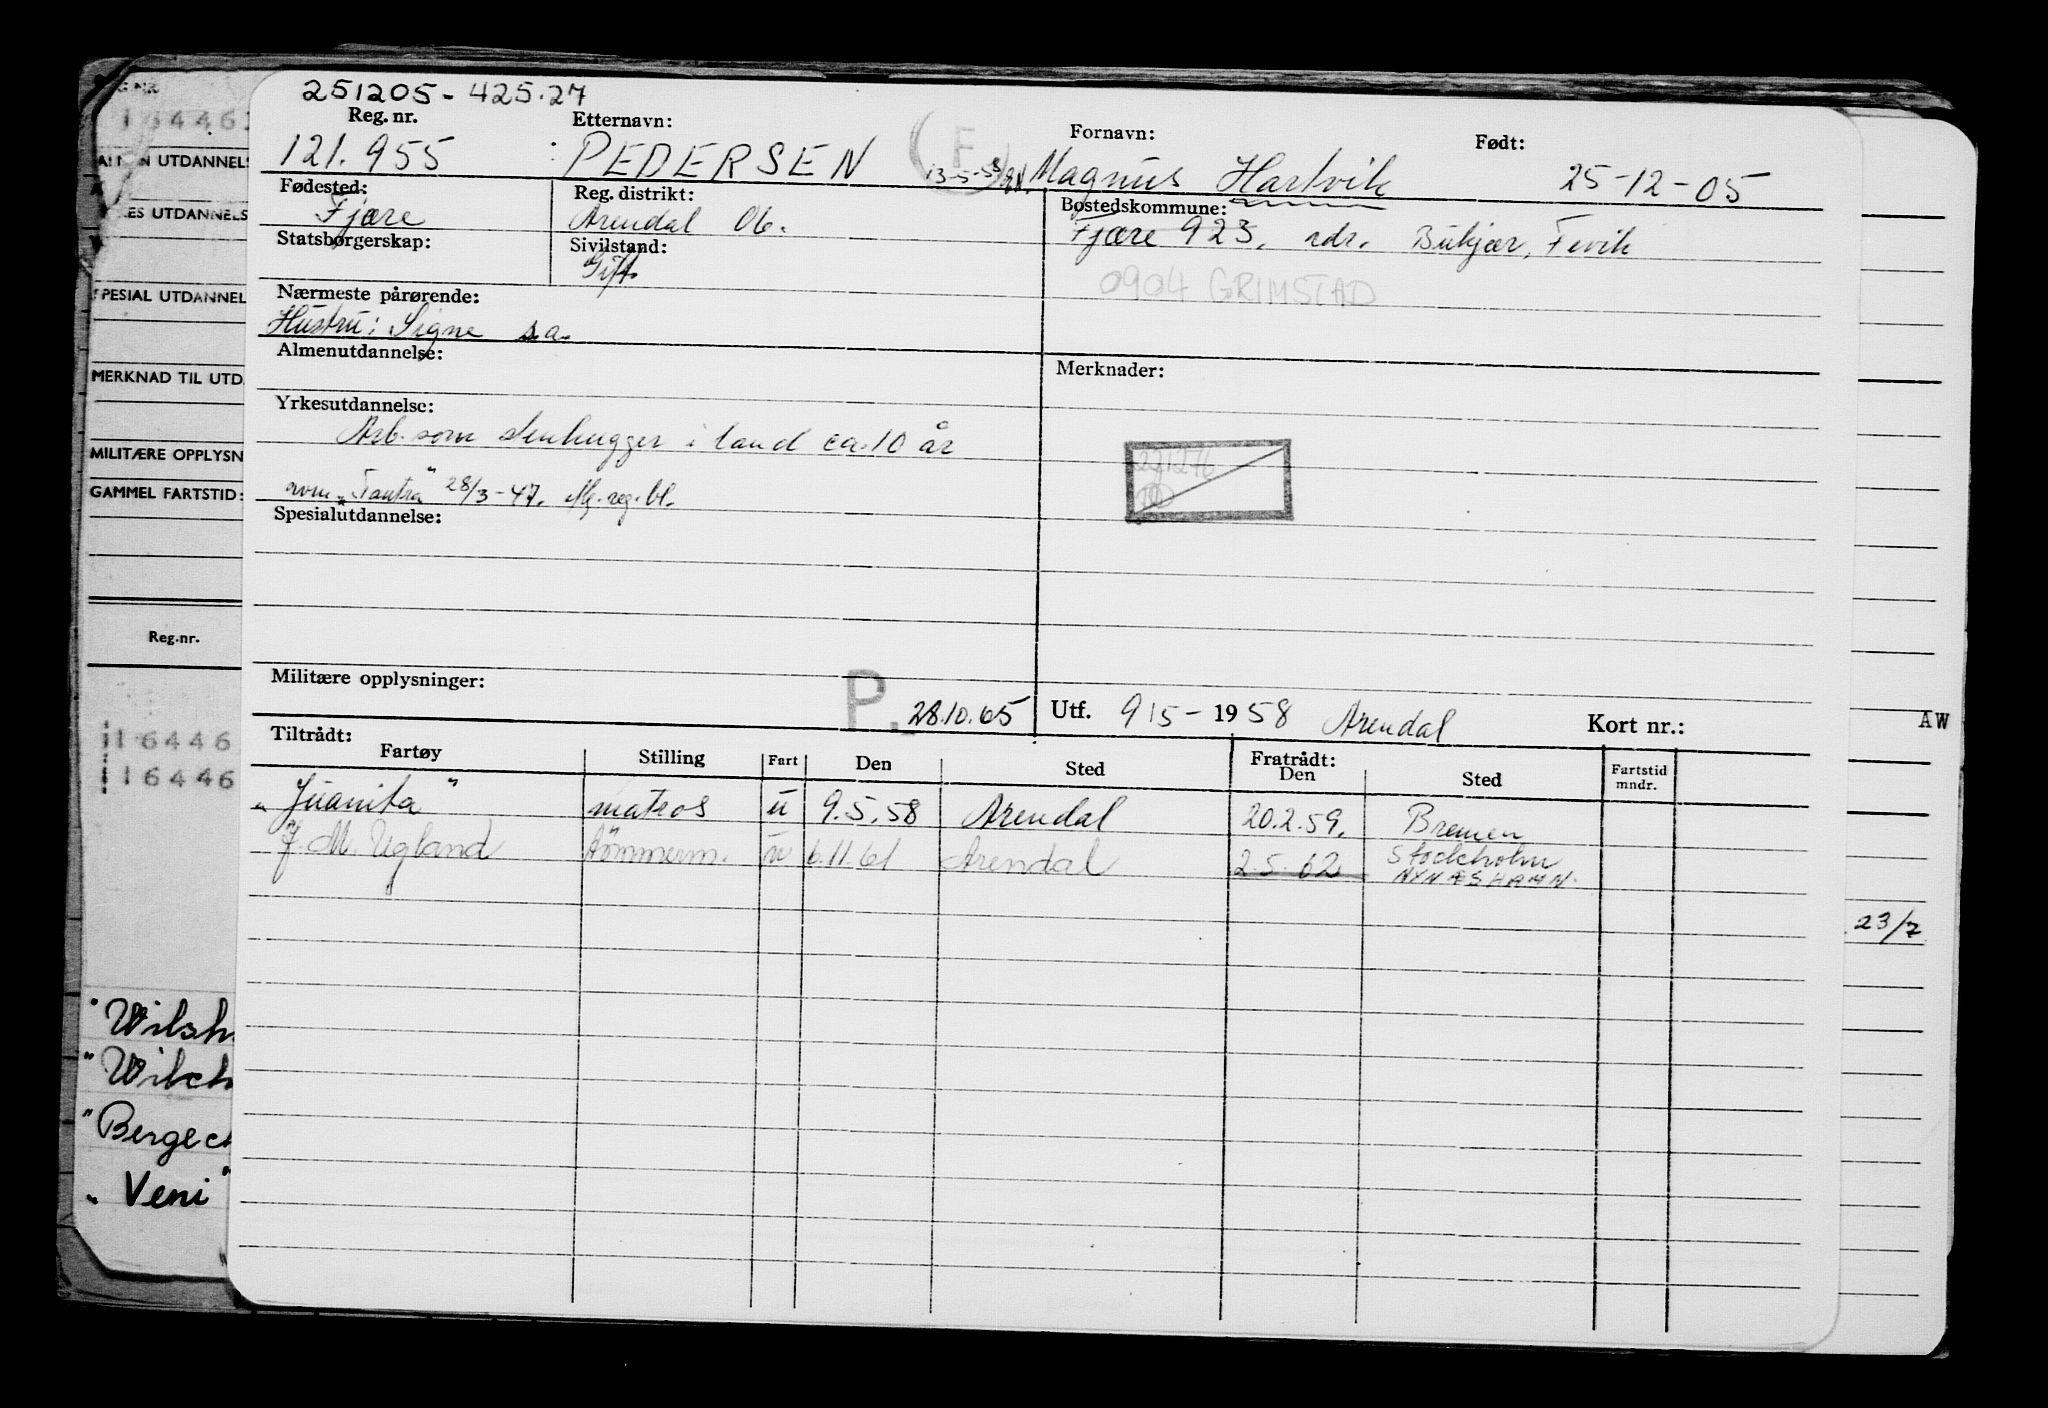 251205-425.27
Reg. nr. Etternavn: Fornavn: Født:
121.955 PEDERSEN (F) 13-5-58 Magnus Hartvik 25-12-05
Fødested: Reg. distrikt: Bostedskommune:
Fjære Arendal 06. Fjære 923. adr. Bukjær, Fevik
Statsborgerskap: Sivilstand:
Gift. 0904 GRIMSTAD
Nærmeste pårørende:
Hustru: Signe s.a.
Almenutdannelse: Merknader:
Yrkesutdannelse:
Arb. som stenhugger i land ca. 10 år
221276
"Tantra" 28/3-47. reg. bl.
Spesialutdannelse:
Militære opplysninger: P. 28.10.65 Utf. 9/5-1958 Arendal Kort nr.:
Tiltrådt: Fratrådt:
Fartøy Stilling Fart Den Sted Den Sted Fartstid mndr.
"Juanita" matros u 9.5.58 Arendal 20.2.59. Bremen
J. M. Ugland tömmerm. u 6.11.61 Arendal 2.5.62 Stockholm
NYNÆSHAMN.
G.NR
UTDANNELS
ES UTDANNELS
SPESIAL UTDANNEL
MERKNAD TIL UTD
MILITÆRE OPPLYSN
GAMMEL FARTSTID:
Reg.nr.
116446
116446
"Wilsh
"Wilch
"Berge
"Veni"
AW
23/7